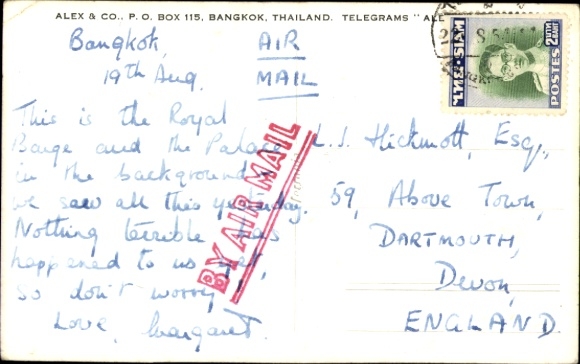 ALEX & CO., P. O. BOX 115, BANGKOK, THAILAND. TELEGRAMS "ALE
Bangkok,
19th Aug.
AIR
MAIL
This is the Royal
Barge and the Palace
in the background,
we saw all this yesterday.
Nothing terrible has
happened to us yet,
so don't worry
Love, Margaret.
BY AIR MAIL
L.J. Hickmott, Esq.,
59, Above Town,
DARTMOUTH,
Devon,
ENGLAND.
ไทย·SIAM
POSTES
2 BAHT